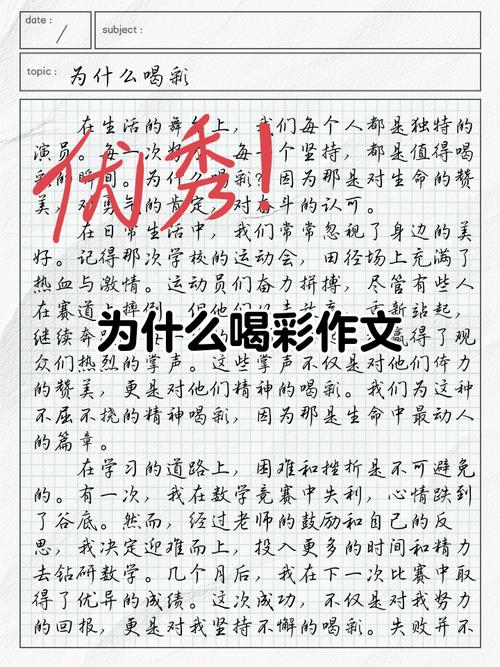 date :
subject :
topic : 为什么喝彩
在生活的舞台上，我们每个人都是独特的
演员。每一次努力，每一个坚持，都是值得喝
彩的瞬间。为什么喝彩？因为那是对生命的赞
美，对勇气的肯定，对奋斗的认可。
优秀!
在日常生活中，我们常常忽视了身边的美
好。记得那次学校的运动会，田径场上充满了
热血与激情。运动员们奋力拼搏，尽管有些人
在赛道上摔倒，但他们 重新站起，
继续奔 赢得了观
为什么喝彩作文
众们热烈的掌声。这些掌声不仅是对他们体力
的赞美，更是对他们精神的喝彩。我们为这种
不屈不挠的精神喝彩，因为那是生命中最动人
的篇章。
在学习的道路上，困难和挫折是不可避免
的。有一次，我在数学竞赛中失利，心情跌到
了谷底。然而，经过老师的鼓励和自己的反
思，我决定迎难而上，投入更多的时间和精力
去钻研数学。几个月后，我在下一次比赛中取
得了优异的成绩。这次成功，不仅是对我努力
的回报，更是对我坚持不懈的喝彩。失败并不